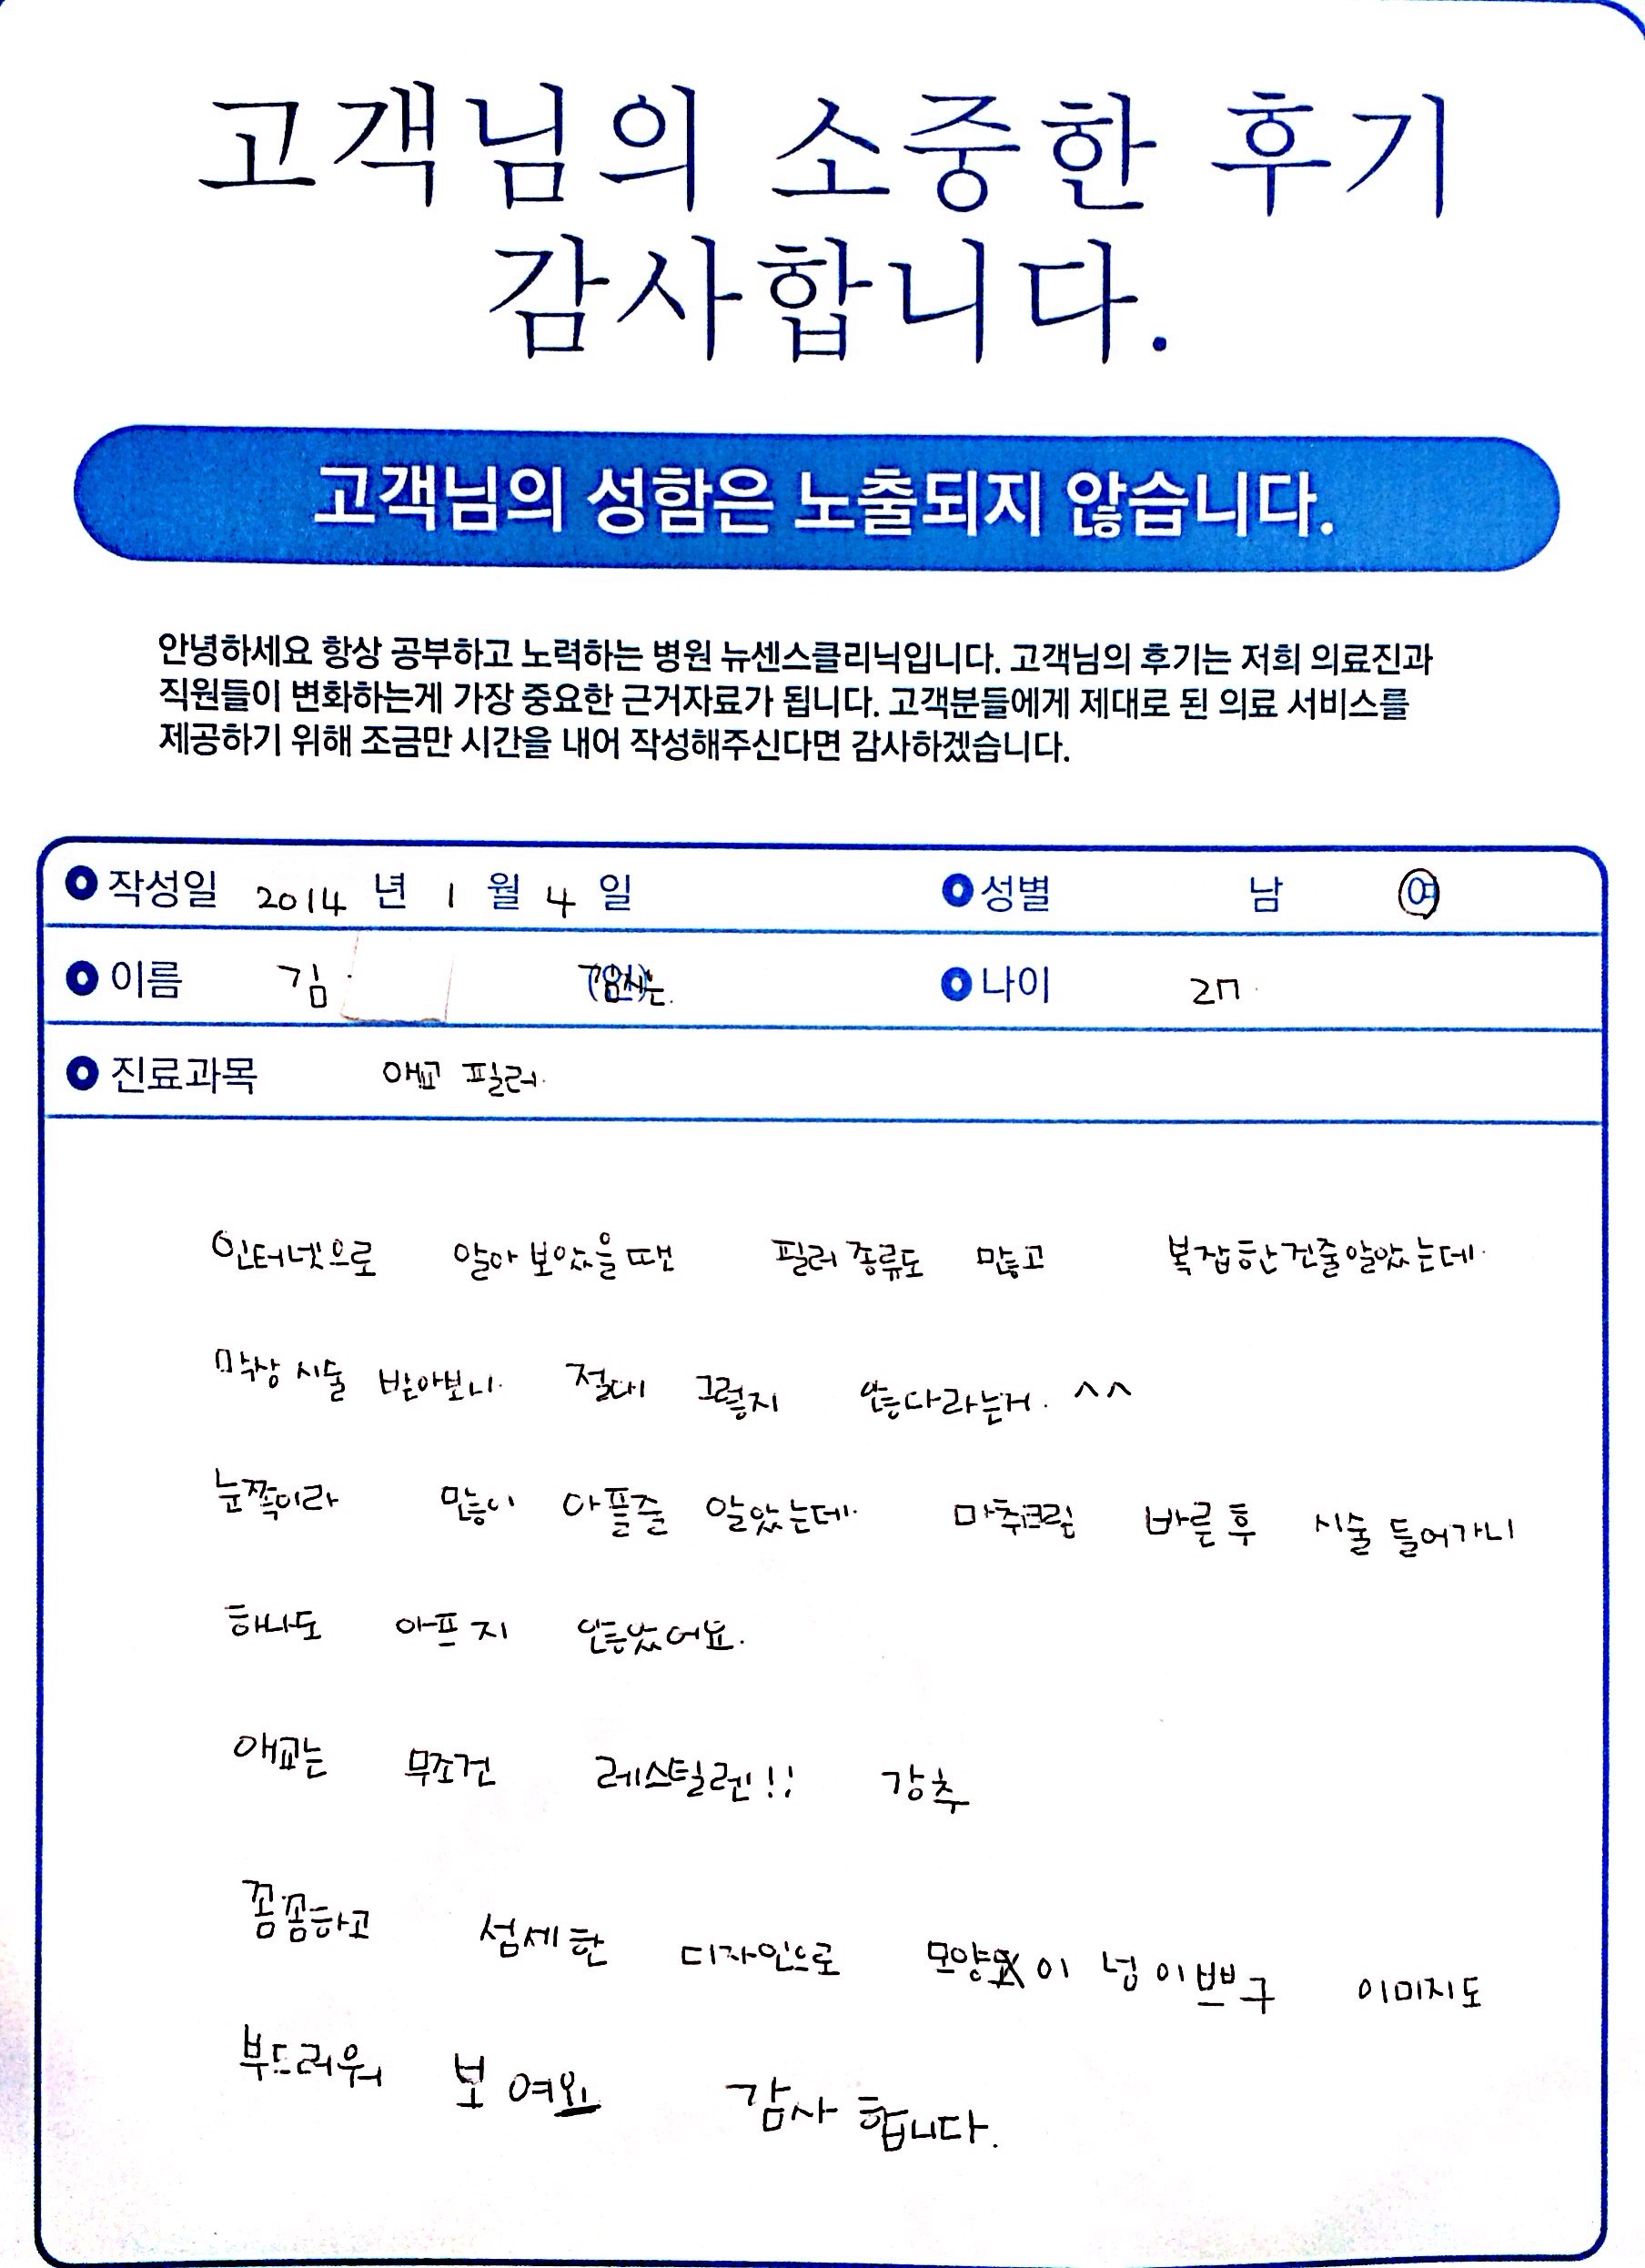 고객님의 소중한 후기
감사합니다.
고객님의 성함은 노출되지 않습니다.
안녕하세요 항상 공부하고 노력하는 병원 뉴센스클리닉입니다. 고객님의 후기는 저희 의료진과
직원들이 변화하는게 가장 중요한 근거자료가 됩니다. 고객분들에게 제대로 된 의료 서비스를
제공하기 위해 조금만 시간을 내어 작성해주신다면 감사하겠습니다.
작성일 2014 년 1 월 4 일 성별 남 여
이름 김 (인) 나이 27
진료과목 애교 필러.
인터넷으로 알아보았을땐 필러종류도 많고 복잡한건줄알았는데.
막상 시술 받아보니 절대 그렇지 않다라는거. ^^
눈쪽이라 많이 아플줄 알았는데 마취크림 바른후 시술 들어가니
하나도 아프지 않았어요.
애교는 무조건 레스틸렌!! 강추
꼼꼼하고 섬세한 디자인으로 모양이 넘 이쁘구 이미지도
부드러워 보여요 감사합니다.